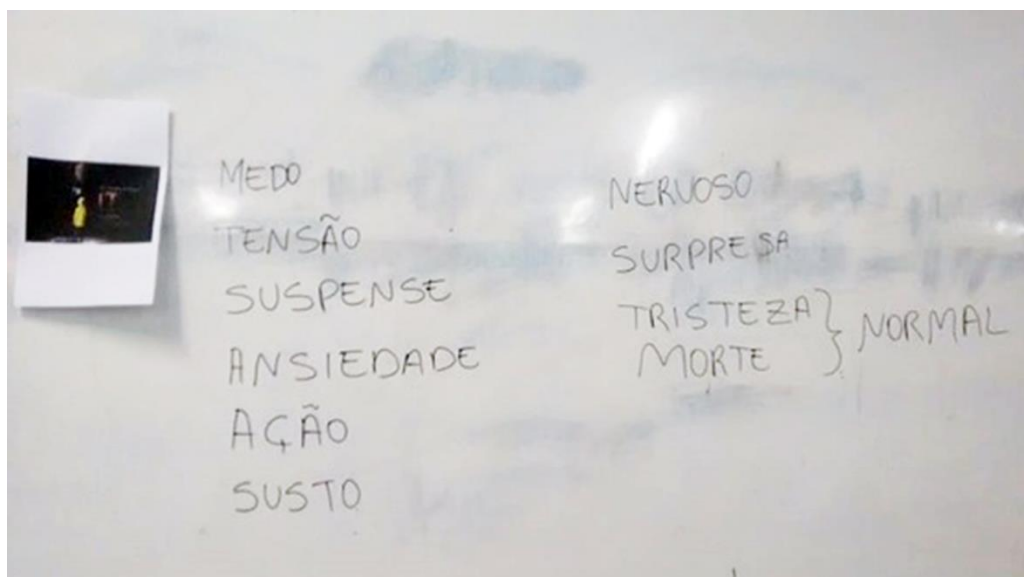 MEDO
TENSÃO
SUSPENSE
ANSIEDADE
AÇÃO
SUSTO
NERVOSO
SURPRESA
TRISTEZA
MORTE
NORMAL